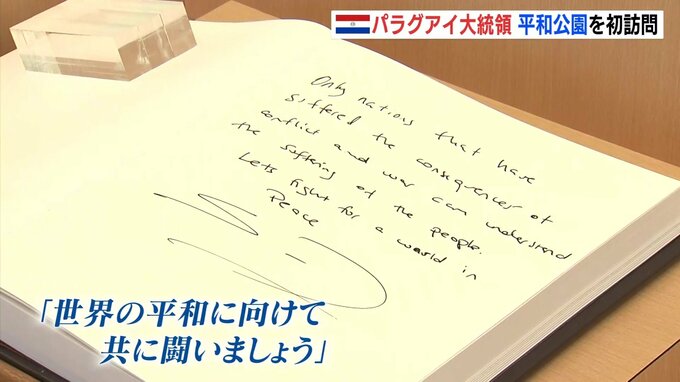 パラグアイ大統領 平和公園を初訪問
Only nations that have
suffered the consequences of
conflict and war can understand
the suffering of the people.
Lets fight for a world in
Peace
「世界の平和に向けて
共に闘いましょう」